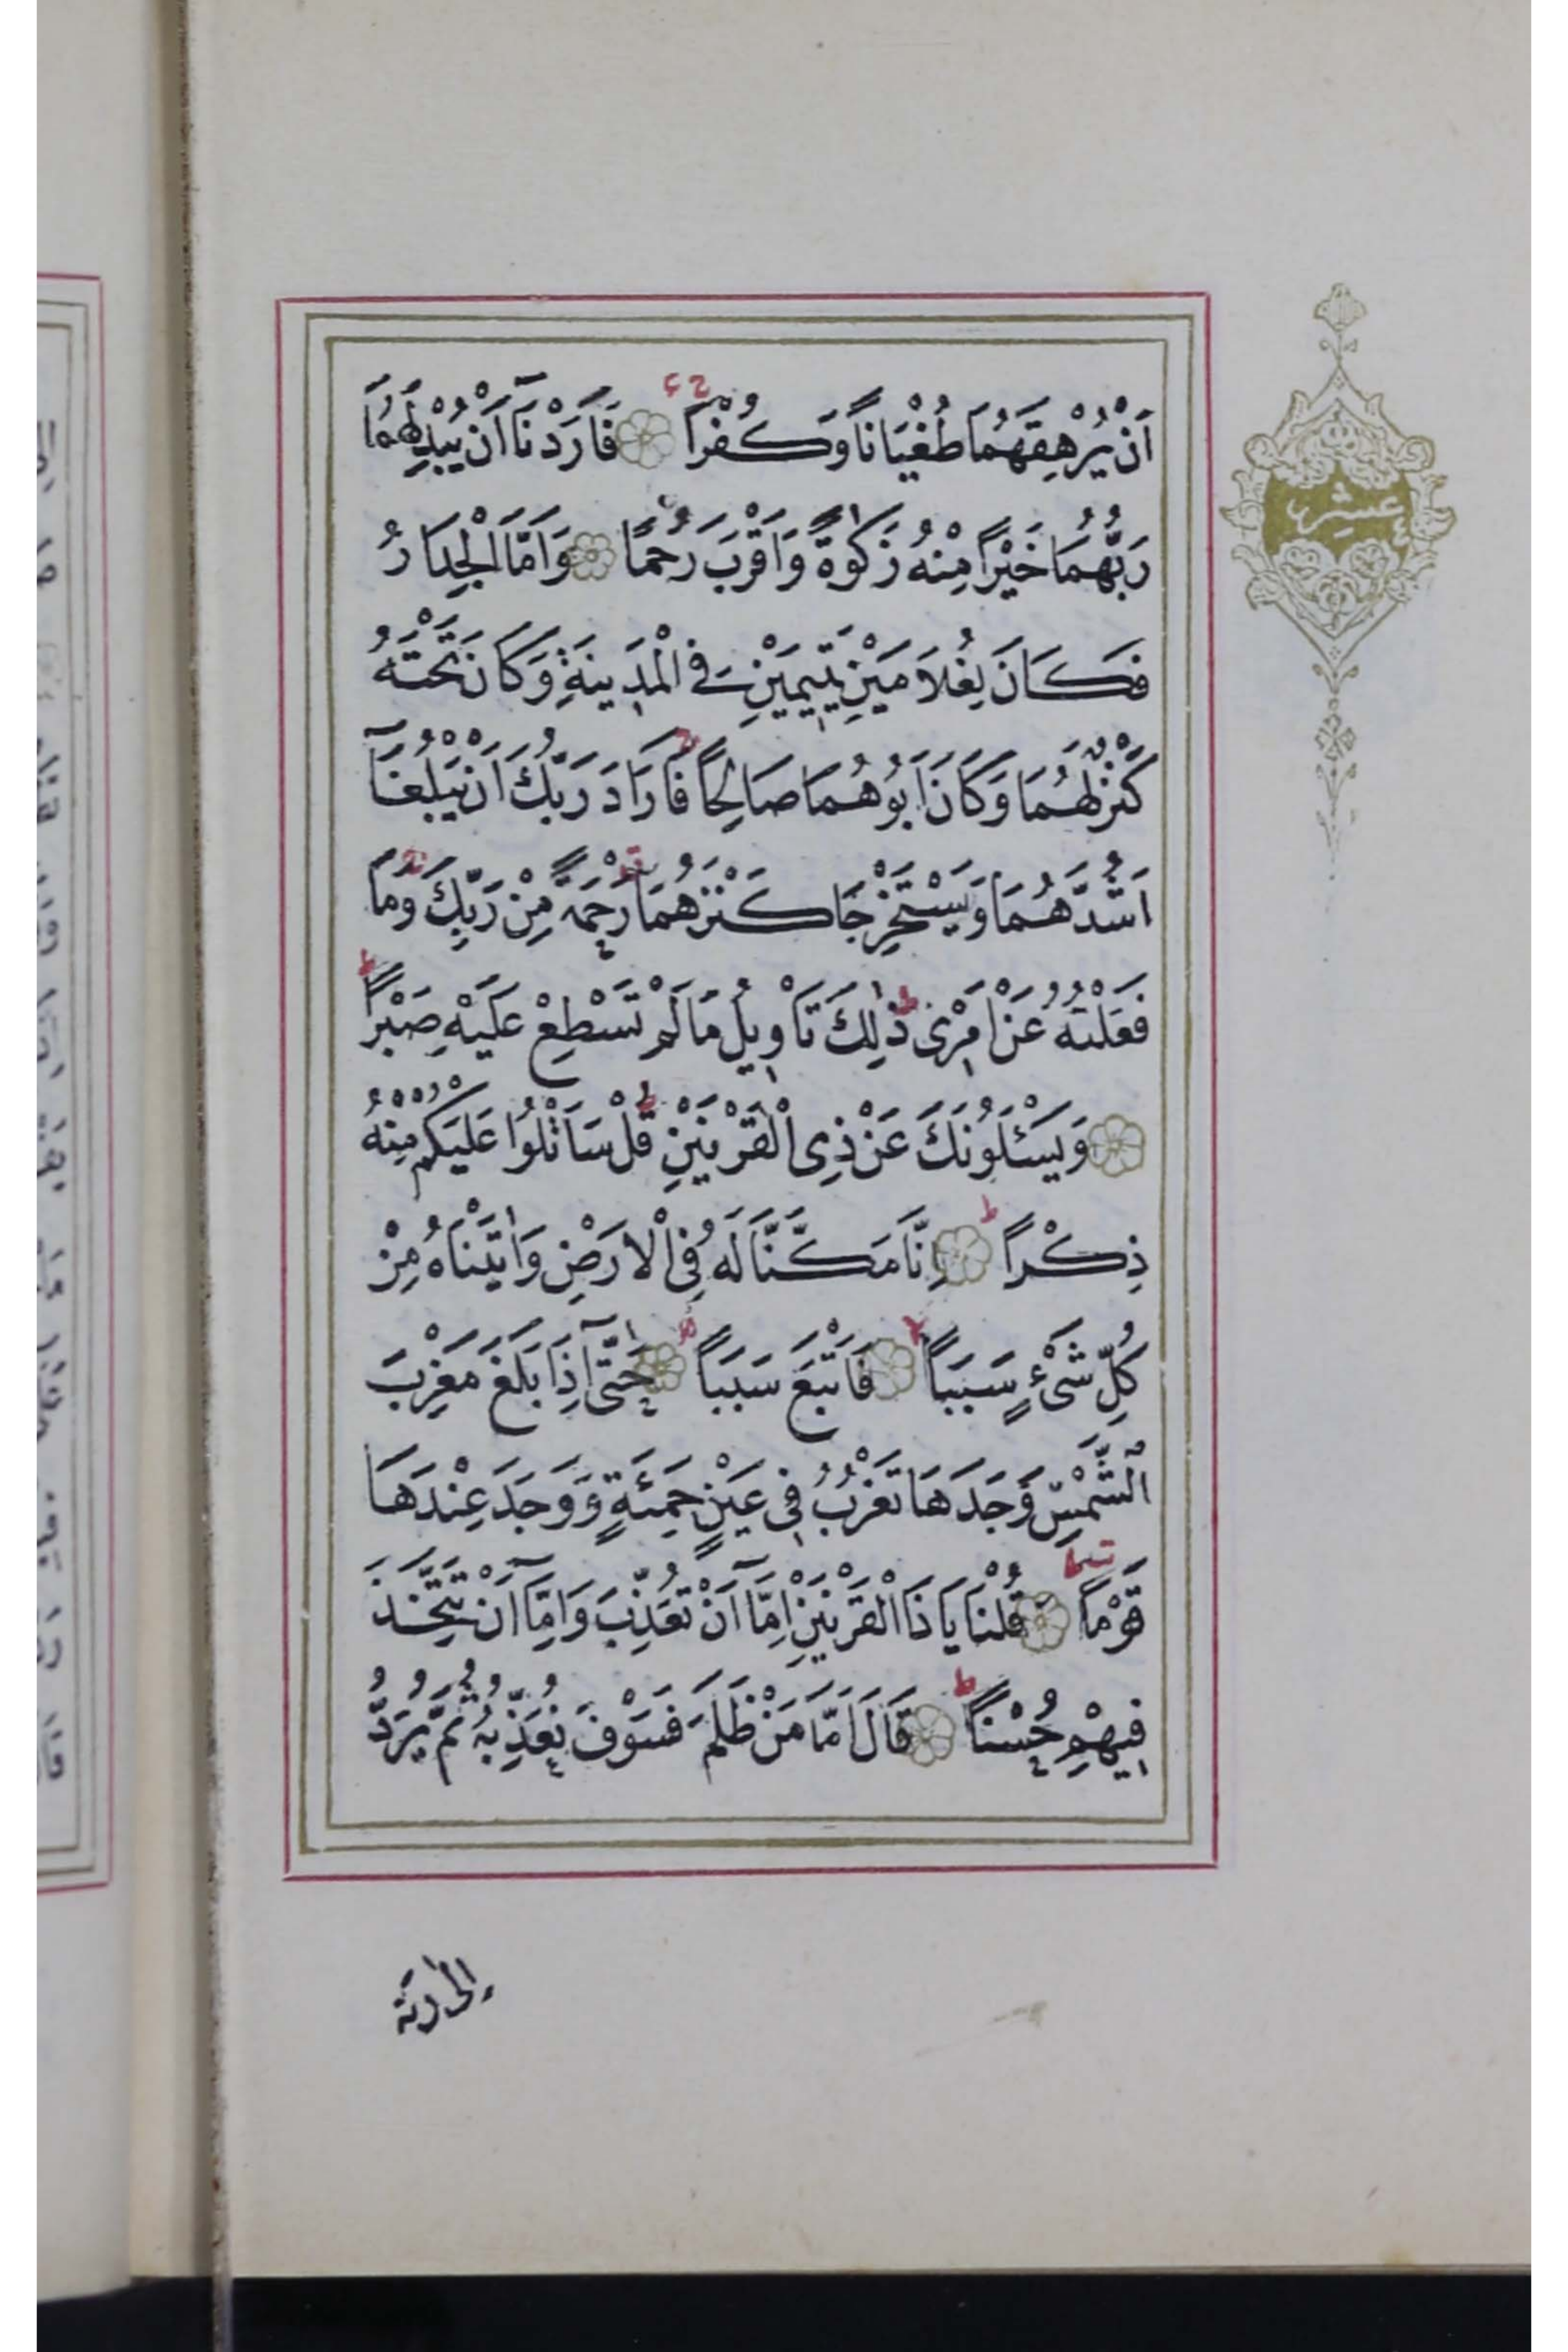 اَنْ يُرْهِقَهُمَا طُغْيَانًا وَكُفْرًا فَاَرَدْنَآ اَنْ يُبْدِلَهُمَا
رَبُّهُمَا خَيْرًا مِنْهُ زَكٰوةً وَاَقْرَبَ رُحْمًا وَاَمَّا الْجِدَارُ
فَكَانَ لِغُلَامَيْنِ يَتِيمَيْنِ فِي الْمَدِينَةِ وَكَانَ تَحْتَهُ
كَنْزٌ لَهُمَا وَكَانَ اَبُوهُمَا صَالِحًا فَاَرَادَ رَبُّكَ اَنْ يَبْلُغَآ
اَشُدَّهُمَا وَيَسْتَخْرِجَا كَنْزَهُمَا رَحْمَةً مِنْ رَبِّكَ وَمَا
فَعَلْتُهُ عَنْ اَمْرِى ذٰلِكَ تَاْوِيلُ مَا لَمْ تَسْطِعْ عَلَيْهِ صَبْرًا
وَيَسْـَٔلُونَكَ عَنْ ذِى الْقَرْنَيْنِ قُلْ سَاَتْلُوا عَلَيْكُمْ مِنْهُ
ذِكْرًا اِنَّا مَكَّنَّا لَهُ فِى الْاَرْضِ وَاٰتَيْنَاهُ مِنْ
كُلِّ شَىْءٍ سَبَبًا فَاَتْبَعَ سَبَبًا حَتّٰٓى اِذَا بَلَغَ مَغْرِبَ
الشَّمْسِ وَجَدَهَا تَغْرُبُ فِى عَيْنٍ حَمِئَةٍ وَوَجَدَ عِنْدَهَا
قَوْمًا قُلْنَا يَا ذَا الْقَرْنَيْنِ اِمَّآ اَنْ تُعَذِّبَ وَاِمَّآ اَنْ تَتَّخِذَ
فِيهِمْ حُسْنًا قَالَ اَمَّا مَنْ ظَلَمَ فَسَوْفَ نُعَذِّبُهُ ثُمَّ يُرَدُّ
اِلٰى رَبِّهِ
عشر